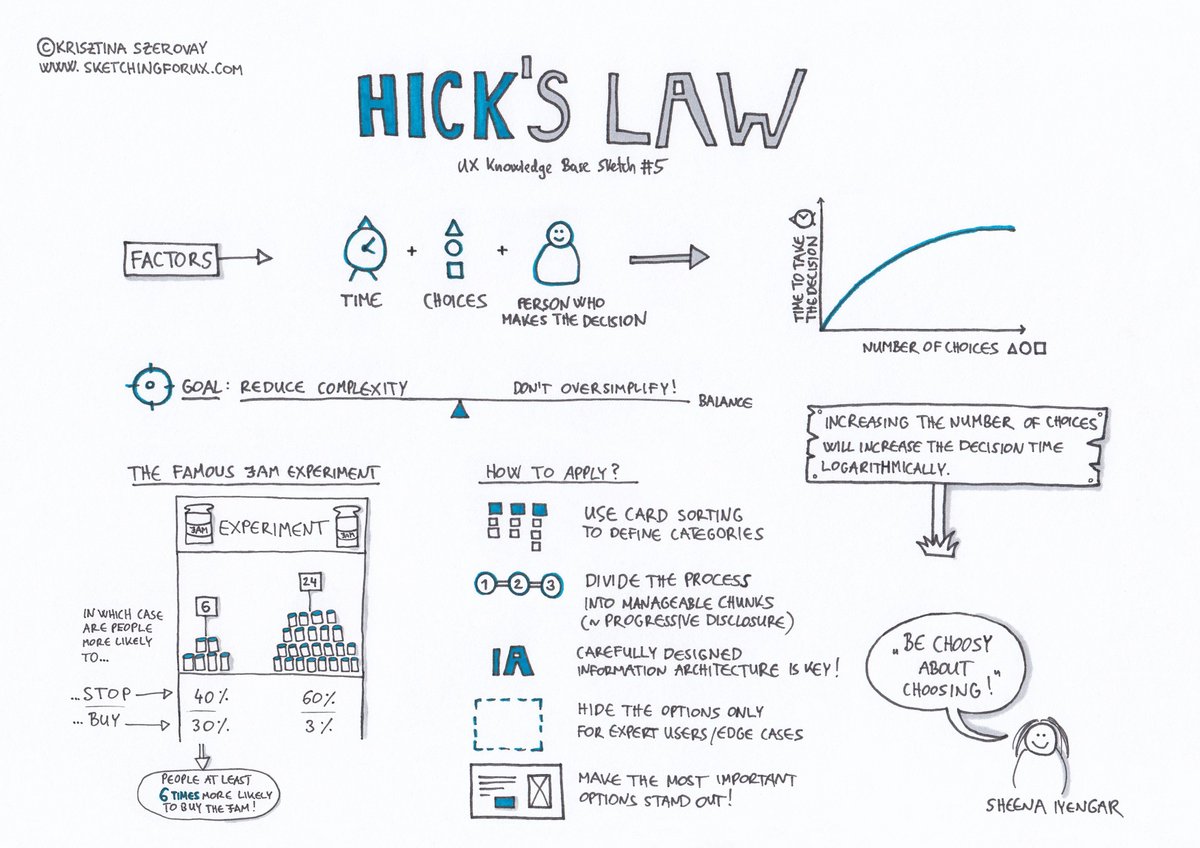 ©KRISZTINA SZEROVAY
WWW.SKETCHINGFORUX.COM
HICK'S LAW
UX Knowledge Base Sketch #5
FACTORS
TIME
+
CHOICES
+
PERSON WHO
MAKES THE DECISION
TIME TO TAKE
THE DECISION
NUMBER OF CHOICES
GOAL: REDUCE COMPLEXITY
DON'T OVERSIMPLIFY!
BALANCE
INCREASING THE NUMBER OF CHOICES
WILL INCREASE THE DECISION TIME
LOGARITHMICALLY.
THE FAMOUS JAM EXPERIMENT
JAM
EXPERIMENT
JAM
6
24
IN WHICH CASE
ARE PEOPLE
MORE LIKELY
TO...
...STOP
40%
60%
...BUY
30%
3%
PEOPLE AT LEAST
6 TIMES MORE LIKELY
TO BUY THE JAM!
HOW TO APPLY?
USE CARD SORTING
TO DEFINE CATEGORIES
1 2 3
DIVIDE THE PROCESS
INTO MANAGEABLE CHUNKS
(~ PROGRESSIVE DISCLOSURE)
IA
CAREFULLY DESIGNED
INFORMATION ARCHITECTURE IS KEY!
HIDE THE OPTIONS ONLY
FOR EXPERT USERS/EDGE CASES
MAKE THE MOST IMPORTANT
OPTIONS STAND OUT!
„BE CHOOSY
ABOUT
CHOOSING!"
SHEENA IYENGAR